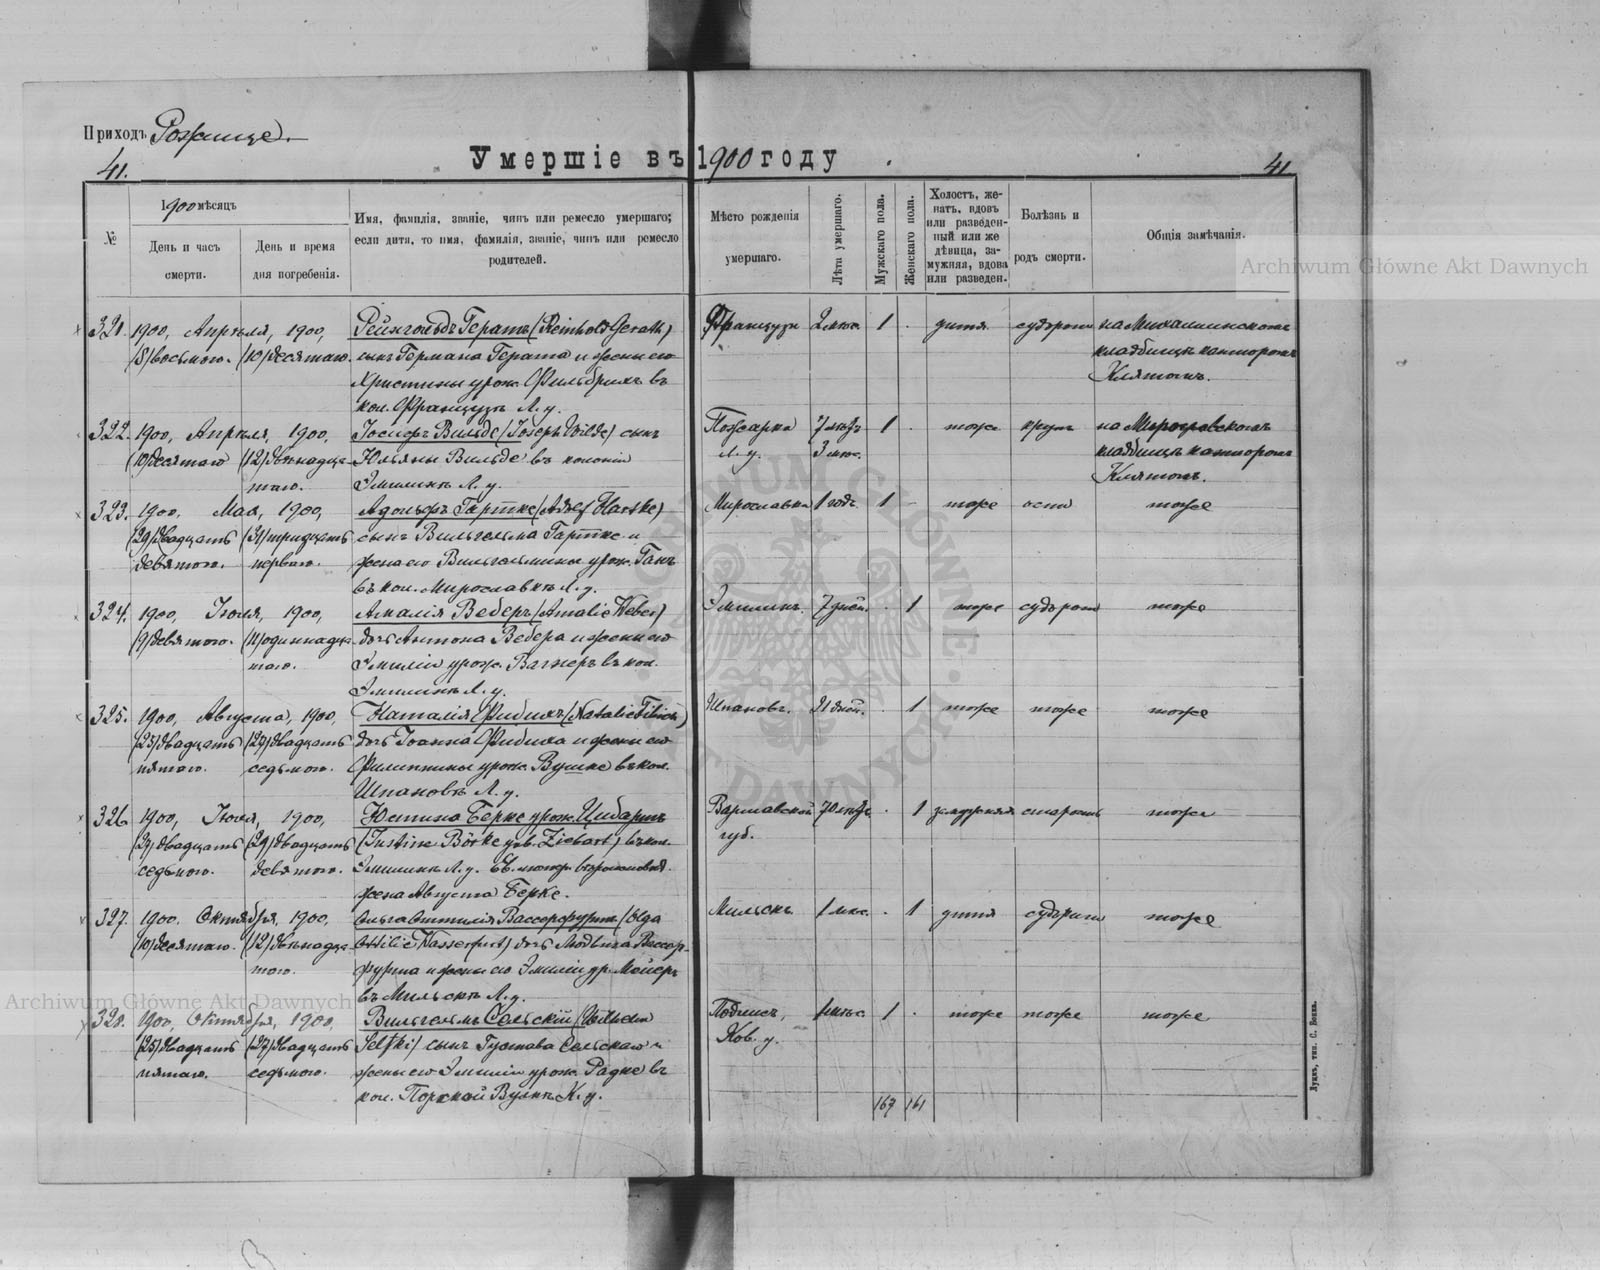 Приходъ Рожище.
41.
Умершіе въ 1900 году
41
№
1900 мѣсяцъ
День и часъ смерти.
День и время дня погребенія.
Имя, фамилія, званіе, чинъ или ремесло умершаго;
если дитя, то имя, фамилія, званіе, чинъ или ремесло
родителей.
Мѣсто рожденія
умершаго.
Лѣта умершаго.
Мужскаго пола.
Женскаго пола.
Холостъ, же-
натъ, вдовъ
или разведен-
ный или же
дѣвица, за-
мужняя, вдова
или разведен.
Болѣзнь и
родъ смерти.
Общія замѣчанія.
Archiwum Główne Akt Dawnych
321. 1900, Апрѣля, 1900, Рейнгольдъ Гератъ (Reinhold Gerath) Французъ 2 мѣс. 1 . дитя судороги на Михалинскомъ
(8) восьмого. (10) десятаго. сынъ Германа Герата и жены его кладбищѣ канторомъ
Христины урож. Фильбрихъ въ Клятомъ.
кол. Французъ Л. у.
322. 1900, Апрѣля, 1900, Іосифъ Вильде (Joseph Wilde) сынъ Пожарки 7 лѣтъ 1 . тоже крупъ на
(10) десятаго (12) двѣнадца- Юльяны Вильде въ колоніи Л. у. 3 мѣс. кладбищѣ канторомъ
таго. Эмилинъ Л. у. Клятомъ.
323. 1900. Мая, 1900, Адольфъ Гартке (Adolf Hartke) Мирославка 1 годъ 1 - тоже оспа тоже
(29) двадцать (31) тридцать сынъ Вильгельма Гартке и
девятого. перваго. жены его Вильгельмины урож. Ганъ
въ кол. Мирославкѣ Л. у.
324. 1900, Іюля, 1900, Амалія Веберъ (Amalie Weber) Эмилинъ. 7 дней. . 1 тоже судороги тоже
(9) девятого. (11) одиннадца- дочь Антона Вебера и жены его
таго. Эмиліи урож. Вагнеръ въ кол.
Эмилинъ Л. у.
325. 1900, Августа, 1900, Наталія Фибихъ (Natalie Fibich) Шпановъ. 21 дней. . 1 тоже тоже тоже
(25) двадцать (27) двадцать дочь Іоанна Фибиха и жены его
пятаго. седьмого. Филиппины урож. Вушке въ кол.
Шпановъ Л. у.
326 1900, Іюля, 1900, Юстина Берке урож. Цибартъ Варшавской 70 лѣтъ . 1 замужняя старость тоже
(27) двадцать (29) двадцать (Justine Börke geb. Ziebart) въ кол. губ.
седьмого. девятого. Эмилинъ Л. у.
жена Августа Берке.
327. 1900. Октября, 1900, Ольга Оттилія Вассерфуртъ (Olga Мильскъ 1 мѣс. . 1 дитя судороги тоже
(10) десятаго. (12) двѣнадца- Ottilie Wasserfurt) дочь Людвига Вассер-
таго. фурта и жены его Эмиліи ур. Мейеръ
въ Мильскѣ Л. у.
Archiwum Główne Akt Dawnych
328. 1900, Октября, 1900, Вильгельмъ Сельскій (Wilhelm 1 мѣс. 1 . тоже тоже тоже
(25) двадцать (27) двадцать Selski) сынъ Густава Сельскаго и Ков. у.
пятаго. седьмого. жены его Эмиліи урож. Радке въ
кол. Порской Вулкѣ К. у.
167 161
Луцкъ, тип. С. Бокка.
ARCHIWUM GŁÓWNE AKT DAWNYCH